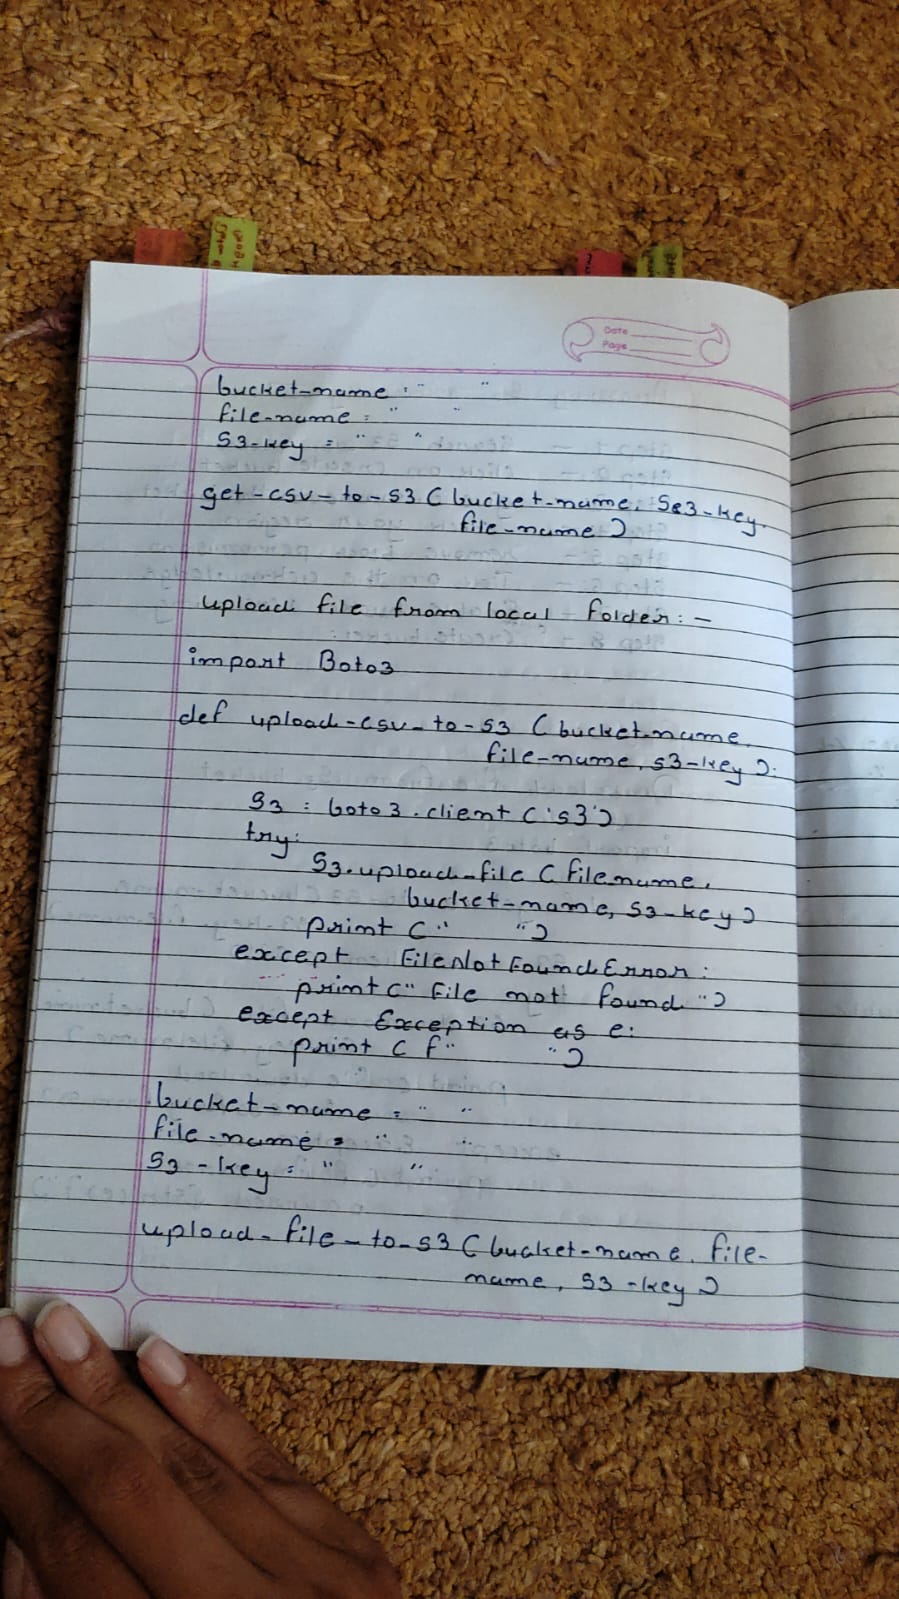 Date
Page
bucket-name = " "
file-name = " "
S3-key = " "
get-csv-to-s3 ( bucket-name, Se3-key,
file-name )
upload file from local folder: -
import Boto3
def upload-csv-to-s3 ( bucket-name,
file-name, s3-key ):
S3 = boto3.client ('s3')
try:
S3.upload-file ( filename,
bucket-name, S3-key )
print (" ")
except FileNotFoundError:
print (" File not found ")
except Exception as e:
print ( f" ")
bucket-name = " "
file-name = " "
S3-key = " "
upload-file-to-s3 ( bucket-name, file-
name, S3-key )